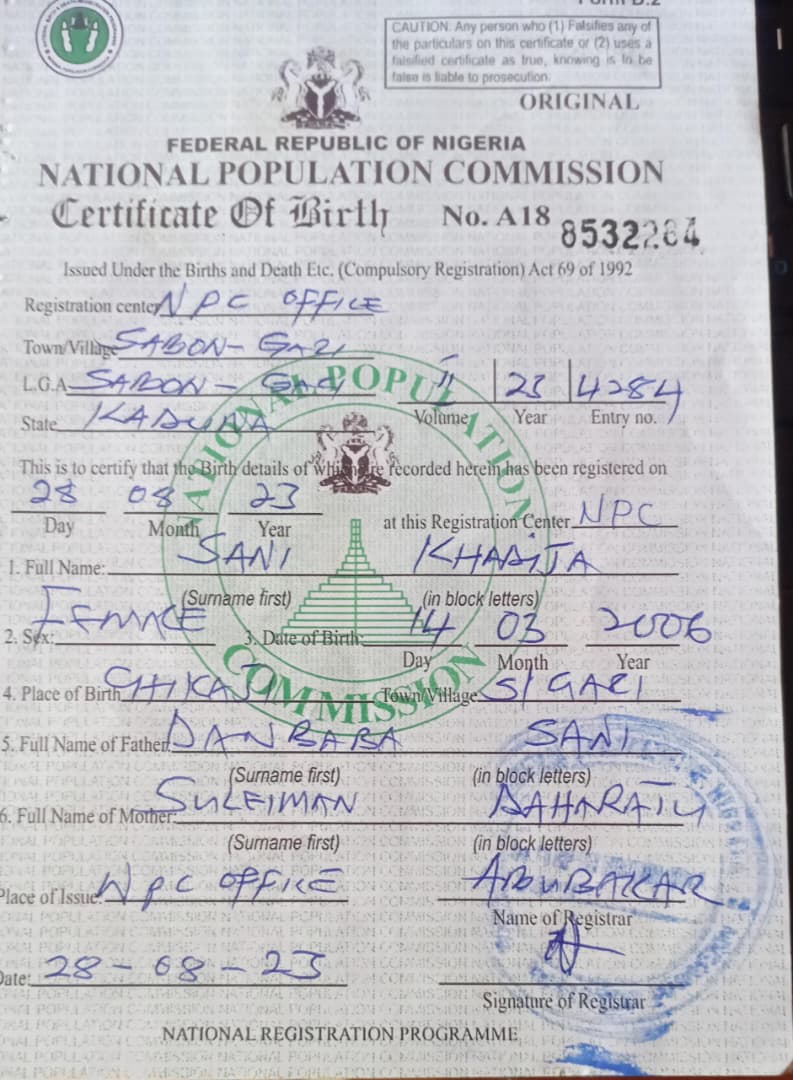 CAUTION: Any person who (1) Falsifies any of
the particulars on this certificate or (2) uses a
falsified certificate as true, knowing is to be
false is liable to prosecution.
ORIGINAL
FEDERAL REPUBLIC OF NIGERIA
NATIONAL POPULATION COMMISSION
Certificate Of Birth No. A18 8532264
Issued Under the Births and Death Etc. (Compulsory Registration) Act 69 of 1992
Registration center NPC OFFICE
Town/Village SABON-GARI
L.G.A SABON- II 23 4284
Volume Year Entry no.
State KADUNA
NATIONAL POPULATION COMMISSION
This is to certify that the Birth details of which are recorded herein has been registered on
28 08 23
Day Month Year at this Registration Center NPC
1. Full Name: SANI KHADIJA
(Surname first) (in block letters)
2. Sex: FEMALE 3. Date of Birth: 14 03 2006
Day Month Year
4. Place of Birth CHIKAJI Town/Village S/GARI
5. Full Name of Father DANBABA SANI
(Surname first) (in block letters)
6. Full Name of Mother: SULEIMAN
(Surname first) (in block letters)
Place of Issue: NPC OFFICE ABUBAKAR
Name of Registrar
Date: 28-08-23
Signature of Registrar
NATIONAL REGISTRATION PROGRAMME